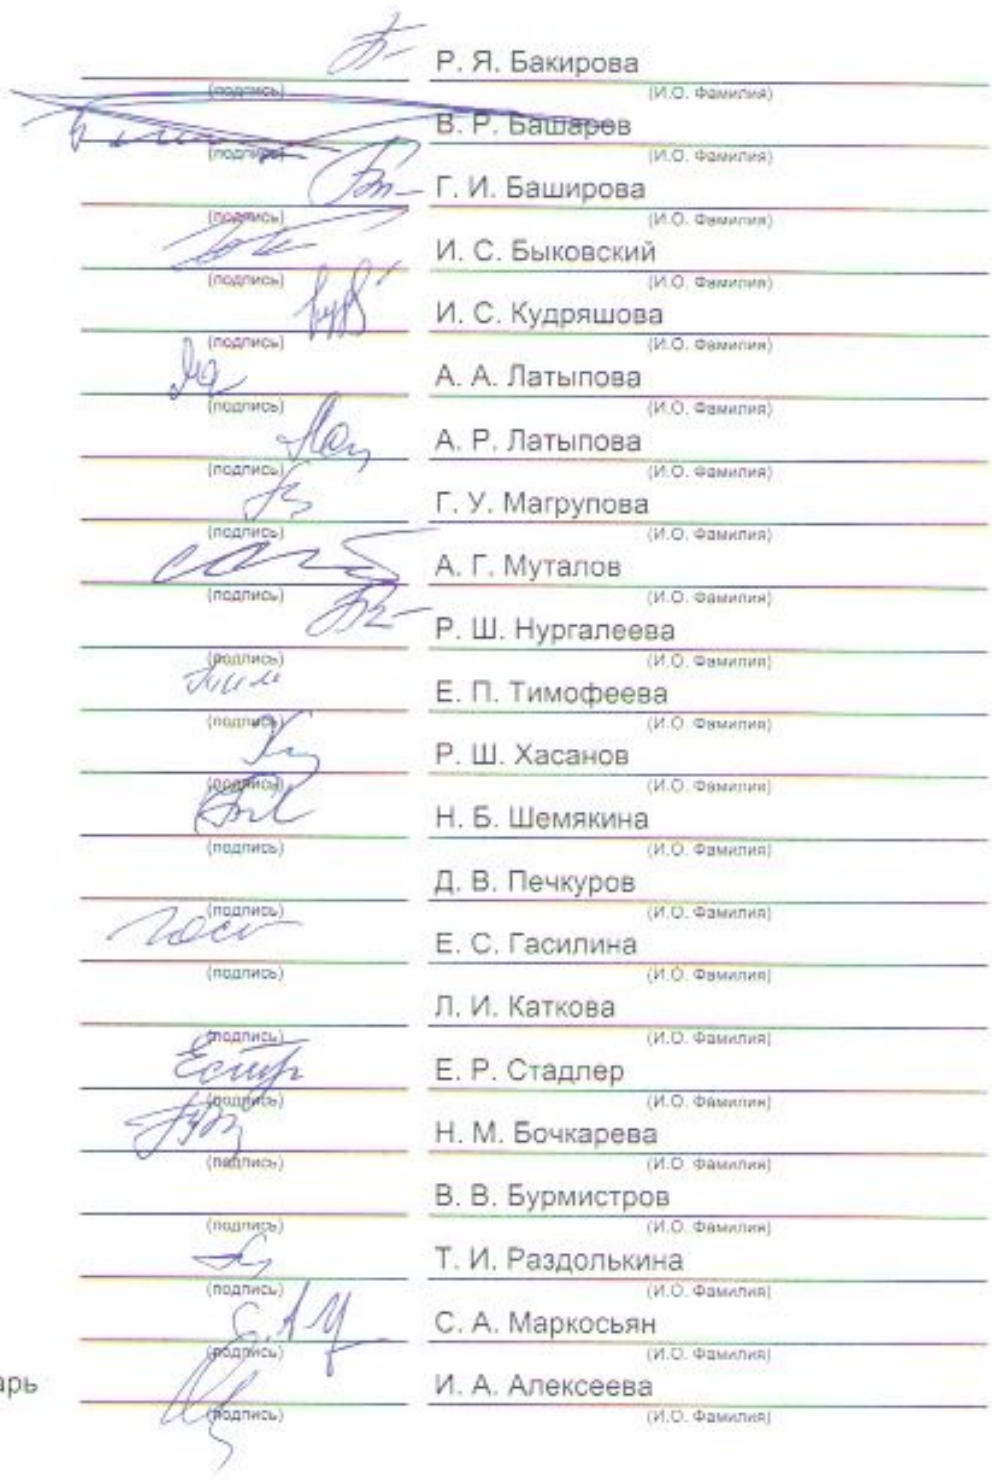 Р. Я. Бакирова
(подпись) (И.О. Фамилия)
В. Р. Башаров
(подпись) (И.О. Фамилия)
Г. И. Баширова
(подпись) (И.О. Фамилия)
И. С. Быковский
(подпись) (И.О. Фамилия)
И. С. Кудряшова
(подпись) (И.О. Фамилия)
А. А. Латыпова
(подпись) (И.О. Фамилия)
А. Р. Латыпова
(подпись) (И.О. Фамилия)
Г. У. Магрупова
(подпись) (И.О. Фамилия)
А. Г. Муталов
(подпись) (И.О. Фамилия)
Р. Ш. Нургалеева
(подпись) (И.О. Фамилия)
Е. П. Тимофеева
(подпись) (И.О. Фамилия)
Р. Ш. Хасанов
(подпись) (И.О. Фамилия)
Н. Б. Шемякина
(подпись) (И.О. Фамилия)
Д. В. Печкуров
(подпись) (И.О. Фамилия)
Е. С. Гасилина
(подпись) (И.О. Фамилия)
Л. И. Каткова
(подпись) (И.О. Фамилия)
Е. Р. Стадлер
(подпись) (И.О. Фамилия)
Н. М. Бочкарева
(подпись) (И.О. Фамилия)
В. В. Бурмистров
(подпись) (И.О. Фамилия)
Т. И. Раздолькина
(подпись) (И.О. Фамилия)
С. А. Маркосьян
(подпись) (И.О. Фамилия)
арь И. А. Алексеева
(подпись) (И.О. Фамилия)